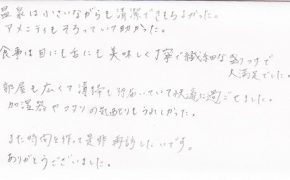 温泉は小さいながらも清潔できもちよかった。
アメニティもそろっていて助かった。
食事は目にも舌にも美味しく丁寧で繊細な盛りつけで
大満足でした。
部屋も広くて清掃も行き届いていて快適に過ごせました。
加湿器やクスリの気配りもうれしかった。
また時間を作って是非再訪したいです。
ありがとうございました。